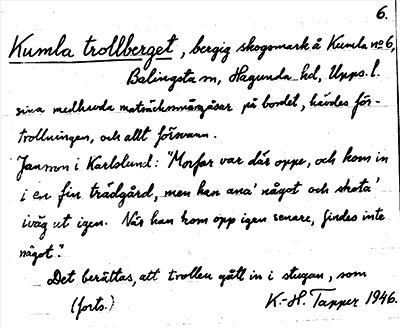 6.
Kumla trollberget, bergig skogsmark å Kumla no 6,
Balingsta sn, Hagunda hd, Upps. l.
sina medhavda matsäcksssmörgåsar på bordet, hävdes för-
trollningen, och allt försvann.
Jansson i Karlslund: "Morfar var där oppe, och kom in
i en fin trädgård, men han ana' något och sköta'
iväg ut igen. När han kom opp igen senare, findes inte
något."
Det berättas, att trollen gått in i stugan, som
(forts.) K.-H. Tapper 1946.